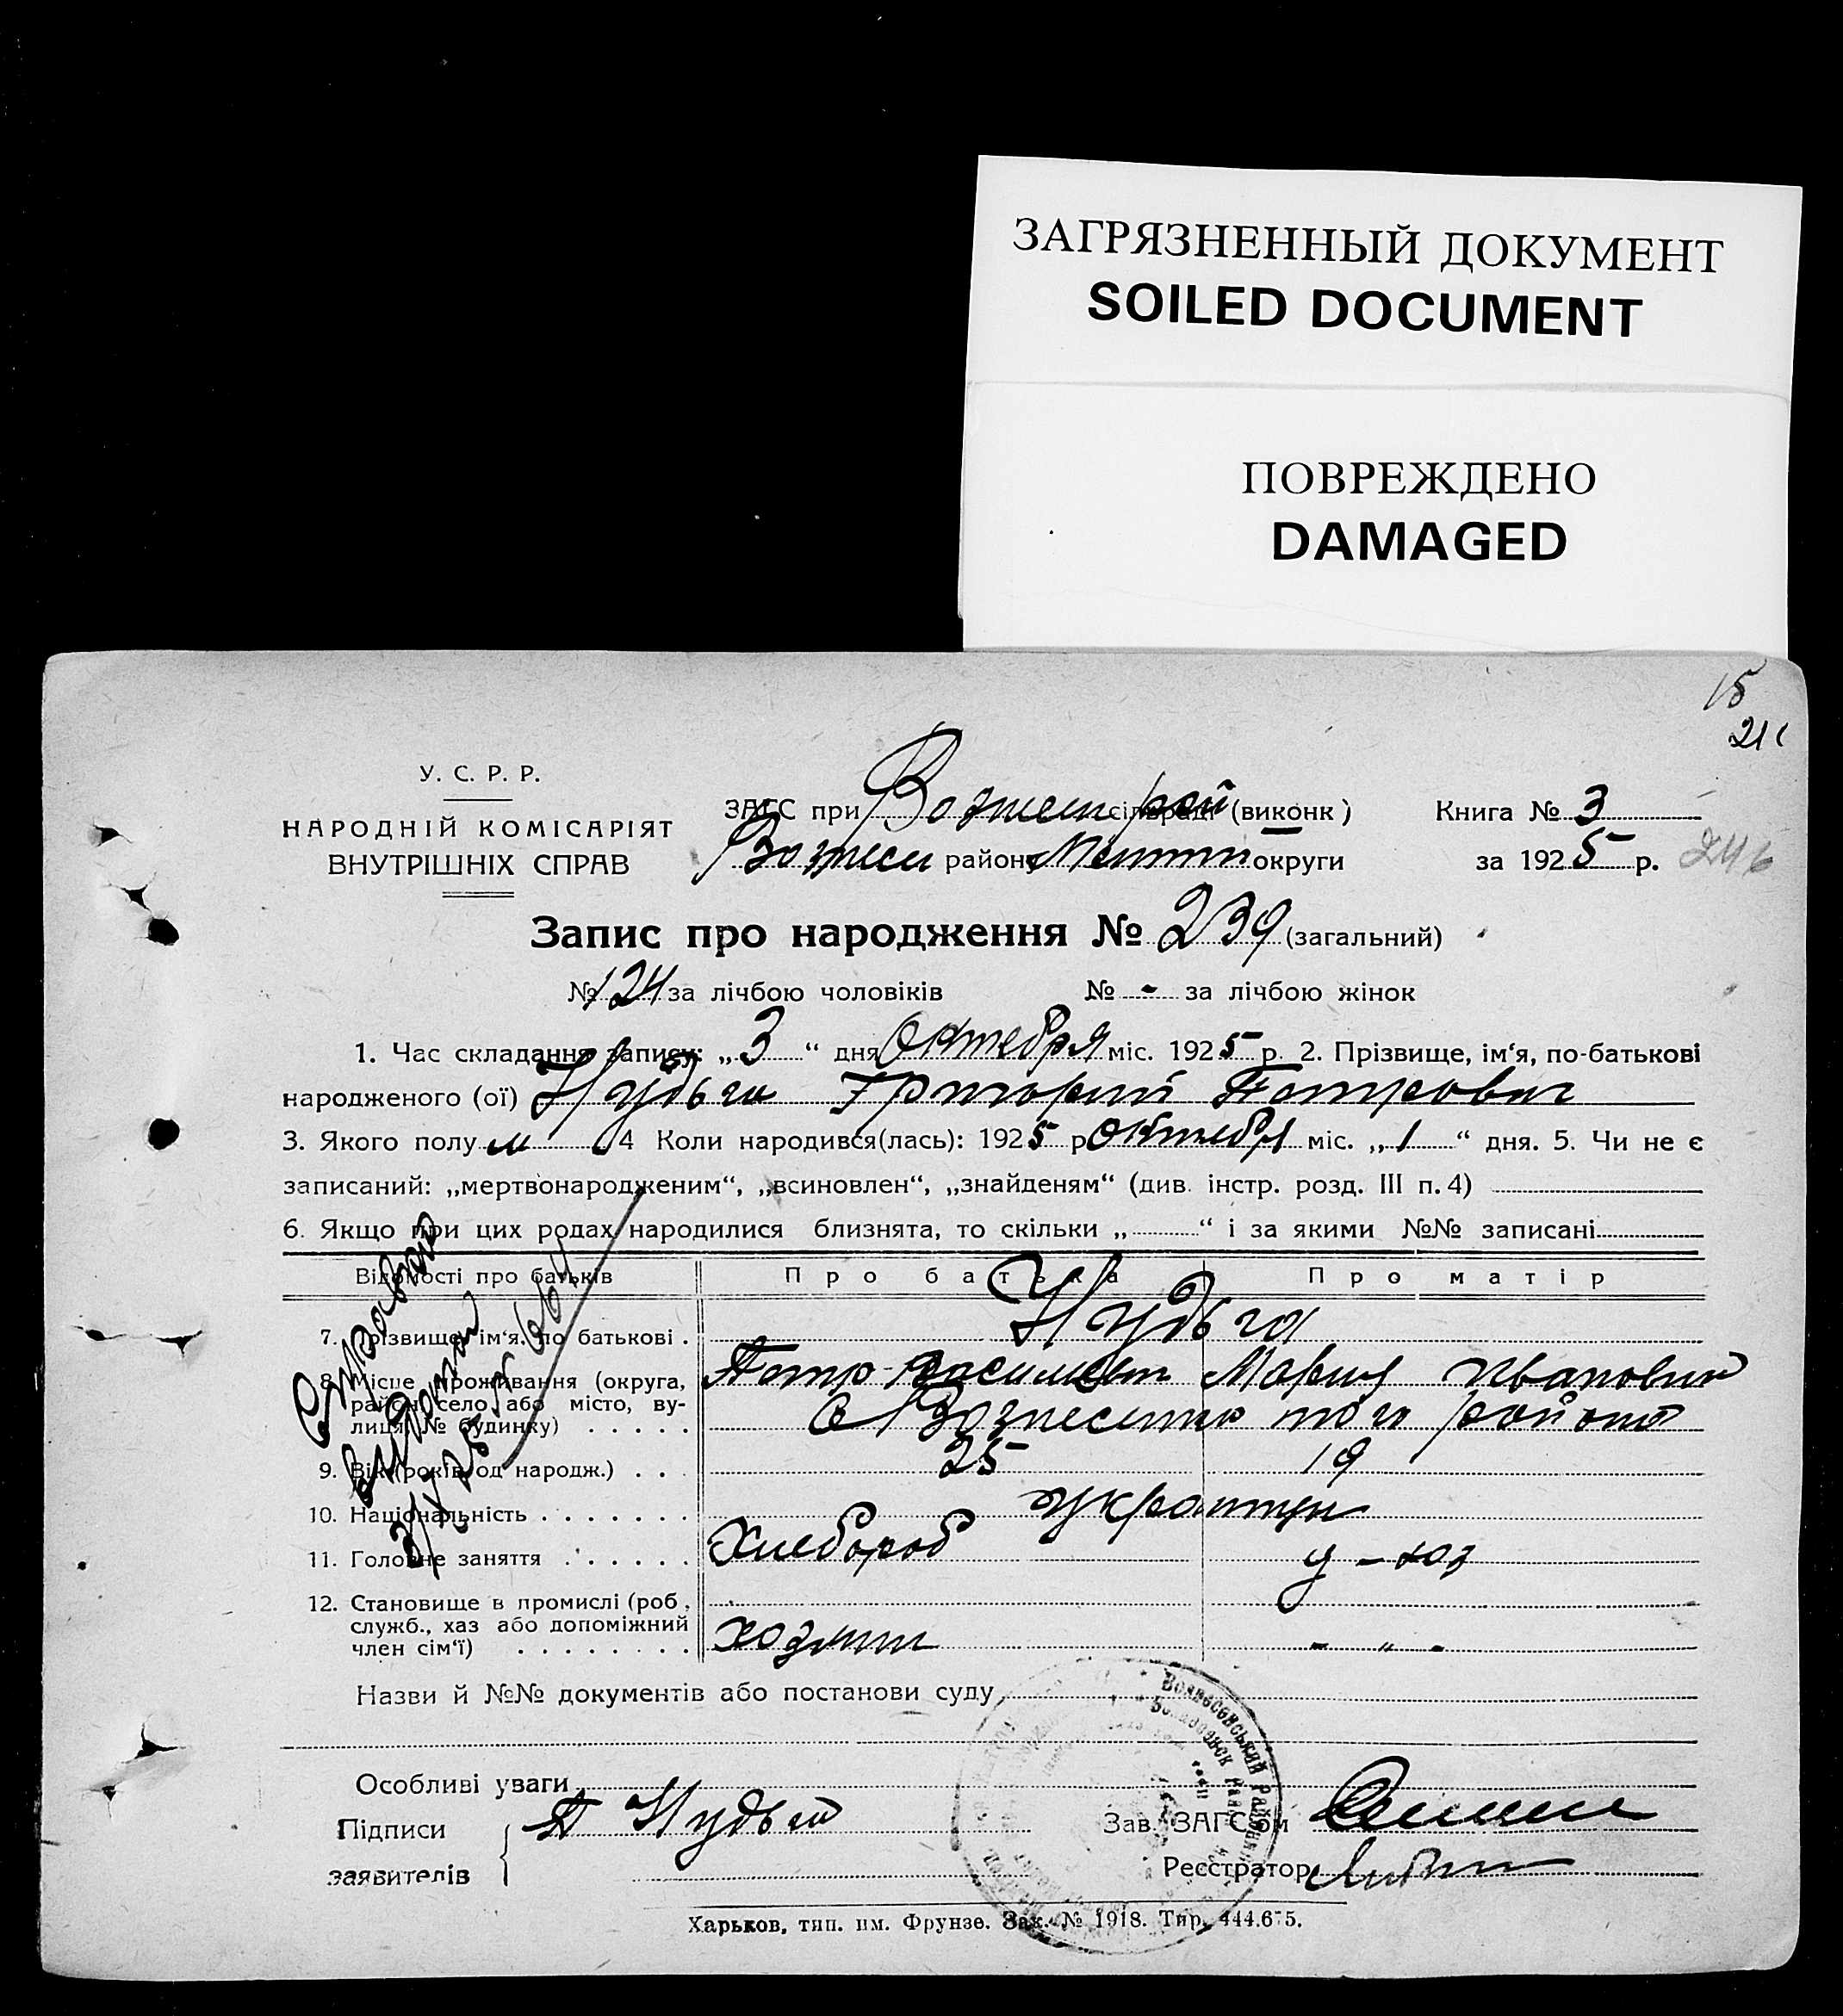 ЗАГРЯЗНЕННЫЙ ДОКУМЕНТ
SOILED DOCUMENT
ПОВРЕЖДЕНО
DAMAGED
15
У. С. Р. Р.
НАРОДНІЙ КОМІСАРІЯТ
ВНУТРІШНІХ СПРАВ
ЗАГС при сільраді (виконк )
Книга № 3
району округи
за 1925 р. 246
Запис про народження № 239 (загальний)
№ 124 за лічбою чоловіків № - за лічбою жінок
1. Час складання запису: „3“ дня Октября міс. 1925 р. 2. Прізвище, ім‘я, по-батькові
народженого (ої) Нудьга Григорий Петрович
3. Якого полу м 4 Коли народився(лась): 1925 р Октября міс. „1“ дня. 5. Чи не є
записаний: „мертвонародженим“, „всиновлен“, „знайденям“ (див. інстр. розд. III п. 4)
6. Якщо при цих родах народилися близнята, то скільки „ “ і за якими №№ записані
Відомості про батьків Про батька Про матір
7. Прізвище, ім‘я, по батькові . Нудьга
Петр Мария Ивановна
8. Місце проживання (округа,
район, село або місто, ву-
лиця, № будинку) . . . . . С Вознесенка того района
9. Вік (років од народж.) . . . 25 19
10. Національність . . . . . . . украинцы
11. Головне заняття . . . . . . Хлебороб у - хоз
12. Становище в промислі (роб.,
служб., хаз або допоміжний
член сім‘ї) . . . . . . . . хозяин - „ -
Справка
выдана
Назви й №№ документів або постанови суду
Особливі уваги
Підписи
заявителів
П Нудьга
Зав. ЗАГС‘ом
Реєстратор
Вознесенський Район
Харьков, тип. им. Фрунзе. Зак. № 1918. Тир. 444.675.